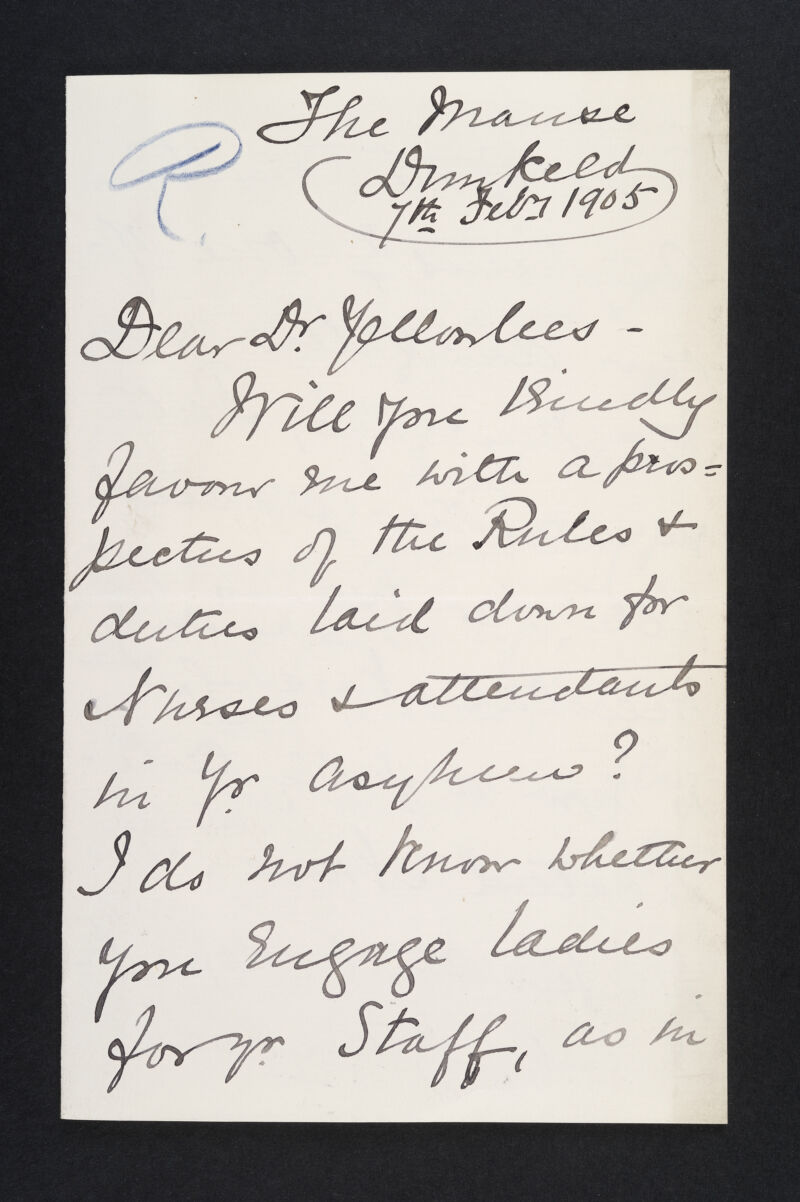 R.
The Manse
Dunkeld
7th Feby 1905
Dear Dr. Yellowlees -
Will you kindly
favour me with a pros=
pectus of the Rules &
duties laid down for
Nurses & attendants
in Yr. asylum?
I do not know whether
you Engage ladies
for yr. Staff, as in